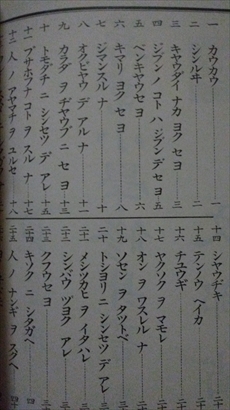 一 カウカウ 一
二 シンルヰ
三 キヤウダイ ナカ ヨク セヨ 三
四 ジブン ノ コト ハ ジブン デ セヨ 五
五 ベンキヤウ セヨ 六
六 キマリ ヨク セヨ 八
七 ジマン スル ナ 十
八 オクビヤウ デ アル ナ 十一
九 カラダ ヲ ヂヤウブ ニ セヨ 十三
十 トモダチ ニ シンセツ デ アレ 十五
十一 ブサホフ ナ コト ヲ スル ナ 十七
十二 人 ノ アヤマチ ヲ ユルセ 十八
十四 シヤウヂキ
十五 テンノウ ヘイカ
十六 チユウギ
十七 ヤクソク ヲ マモレ
十八 オン ヲ ワスレル ナ
十九 ソセン ヲ タツトベ
二十 トシヨリ ニ シンセツ デ アレ
二十一 メシツカヒ ヲ イタハレ
二十二 シンバウ ヅヨク アレ
二十三 クフウ セヨ
二十四 キソク ニ シタガヘ
二十五 人 ノ ナンギ ヲ スクヘ